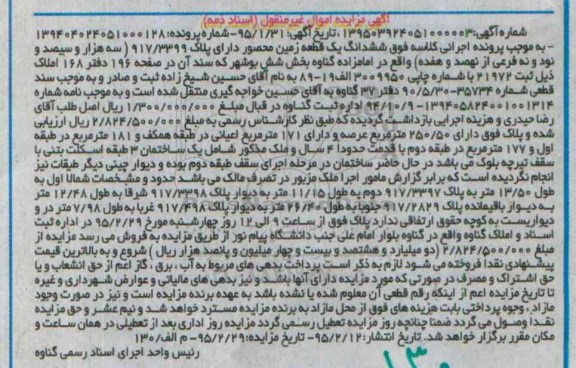 آگهی مزایده اموال غیرمنقول (اسناد ذمه)
شماره آگهی:۱۳۹۵۰۳۹۲۴۰۵۱۰۰۰۰۰۳؛ تاریخ آگهی: ۹۵/۱/۳۱-شماره پرونده:۱۳۹۴۰۴۰۲۴۰۵۱۰۰۰۱۲۸
- به موجب پرونده اجرائی کلاسه فوق ششدانگ یک قطعه زمین محصور دارای پلاک ۹۱۷/۳۳۹۹ (سه هزار و سیصد و
نود و نه فرعی از نهصد و هفده) واقع در امامزاده گناوه بخش شش بوشهر که سند آن در صفحه ۱۹۶ دفتر ۱۶۸ املاک
ذیل ثبت ۲۱۹۷۲ با شماره چاپی ۳۰۰۹۹۵۰ الف۱۹-۸۹ به نام آقای حسین شیخ زاده ثبت و صادر و به موجب سند
قطعی شماره ۳۵۷۳۴-۹۰/۵/۳۰ دفتر ۳۷ گناوه به آقای حسین خواجه گیری منتقل شده است و به موجب نامه شماره
۱۳۹۴۰۵۸۲۴۰۰۱۰۰۱۳۱۴-۹۴/۱۰/۹ اداره ثبت گناوه در قبال مبلغ ۱/۳۰۰/۰۰۰/۰۰۰ ریال اصل طلب آقای
رضا حیدری و هزینه اجرایی بازداشت گردیده که طبق نظر کارشناس رسمی به مبلغ ۲/۸۲۴/۵۰۰/۰۰۰ ریال ارزیابی
شده و پلاک فوق دارای ۲۵۰/۵۰ مترمربع عرصه و دارای ۱۷۱ مترمربع اعیانی در طبقه همکف و ۱۸۱ مترمربع در طبقه
اول و ۱۷۷ مترمربع در طبقه دوم با قدمت حدودا ۴ سال و ملک مذکور شامل یک ساختمان ۳ طبقه اسکلت بتنی با
سقف تیرچه بلوک می باشد در حال حاضر ساختمان در مرحله اجرای سقف طبقه دوم بوده و دیوار چینی دیگر طبقات نیز
انجام نگردیده است که برابر گزارش مامور اجرا ملک مزبور در تصرف مالک می باشد حدود و مشخصات شمالا اول به
طول ۱۳/۵۰ متر به پلاک ۹۱۷/۳۳۹۷ دوم به طول ۱۱/۱۵ متر به دیوار پلاک ۹۱۷/۳۳۹۸ شرقا به طول ۱۲/۴۸ متر
به دیوار باقیمانده پلاک ۹۱۷/۲۸۲۹ جنوبا به طول ۲۶/۴۰ متر به دیوار پلاک ۹۱۷/۴۹۸ غربا به طول ۷/۹۸ متر در و
دیواریست به کوچه حقوق ارتفاقی ندارد پلاک فوق از ساعت ۹ الی ۱۲ روز چهارشنبه مورخ ۹۵/۲/۲۹ در اداره ثبت
اسناد و املاک گناوه واقع در گناوه بلوار امام علی جنب دانشگاه پیام نور از طریق مزایده به فروش می رسد مزایده از
مبلغ ۲/۸۲۴/۵۰۰/۰۰۰ (دو میلیارد و هشتصد و بیست و چهار میلیون و پانصد هزار ریال) شروع و به بالاترین قیمت
پیشنهادی نقدا فروخته می شود لازم به ذکر است پرداخت بدهی های مربوط به آب ، برق ، گاز اعم از حق انشعاب و یا
حق اشتراک و مصرف در صورتی که مورد مزایده دارای آنها باشد و نیز بدهی های مالیاتی و عوارض شهرداری و غیره
تا تاریخ مزایده اعم از اینکه رقم قطعی آن معلوم شده یا نشده باشد به عهده برنده مزایده است و نیز در صورت وجود
مازاد ، وجوه پرداختی بابت هزینه های فوق از محل مازاد به برنده مزایده مسترد خواهد شد و نیم عشر و حق مزایده
نقدا وصول می گردد ضمنا چنانچه روز مزایده تعطیل رسمی گردد مزایده روز اداری بعد از تعطیلی در همان ساعت و
مکان مقرر برگزار خواهد شد. تاریخ انتشار:۹۵/۲/۱۲- تاریخ مزایده:۹۵/۲/۲۹- م الف/۱۳۰
رئیس واحد اجرای اسناد رسمی گناوه
۱۳۰